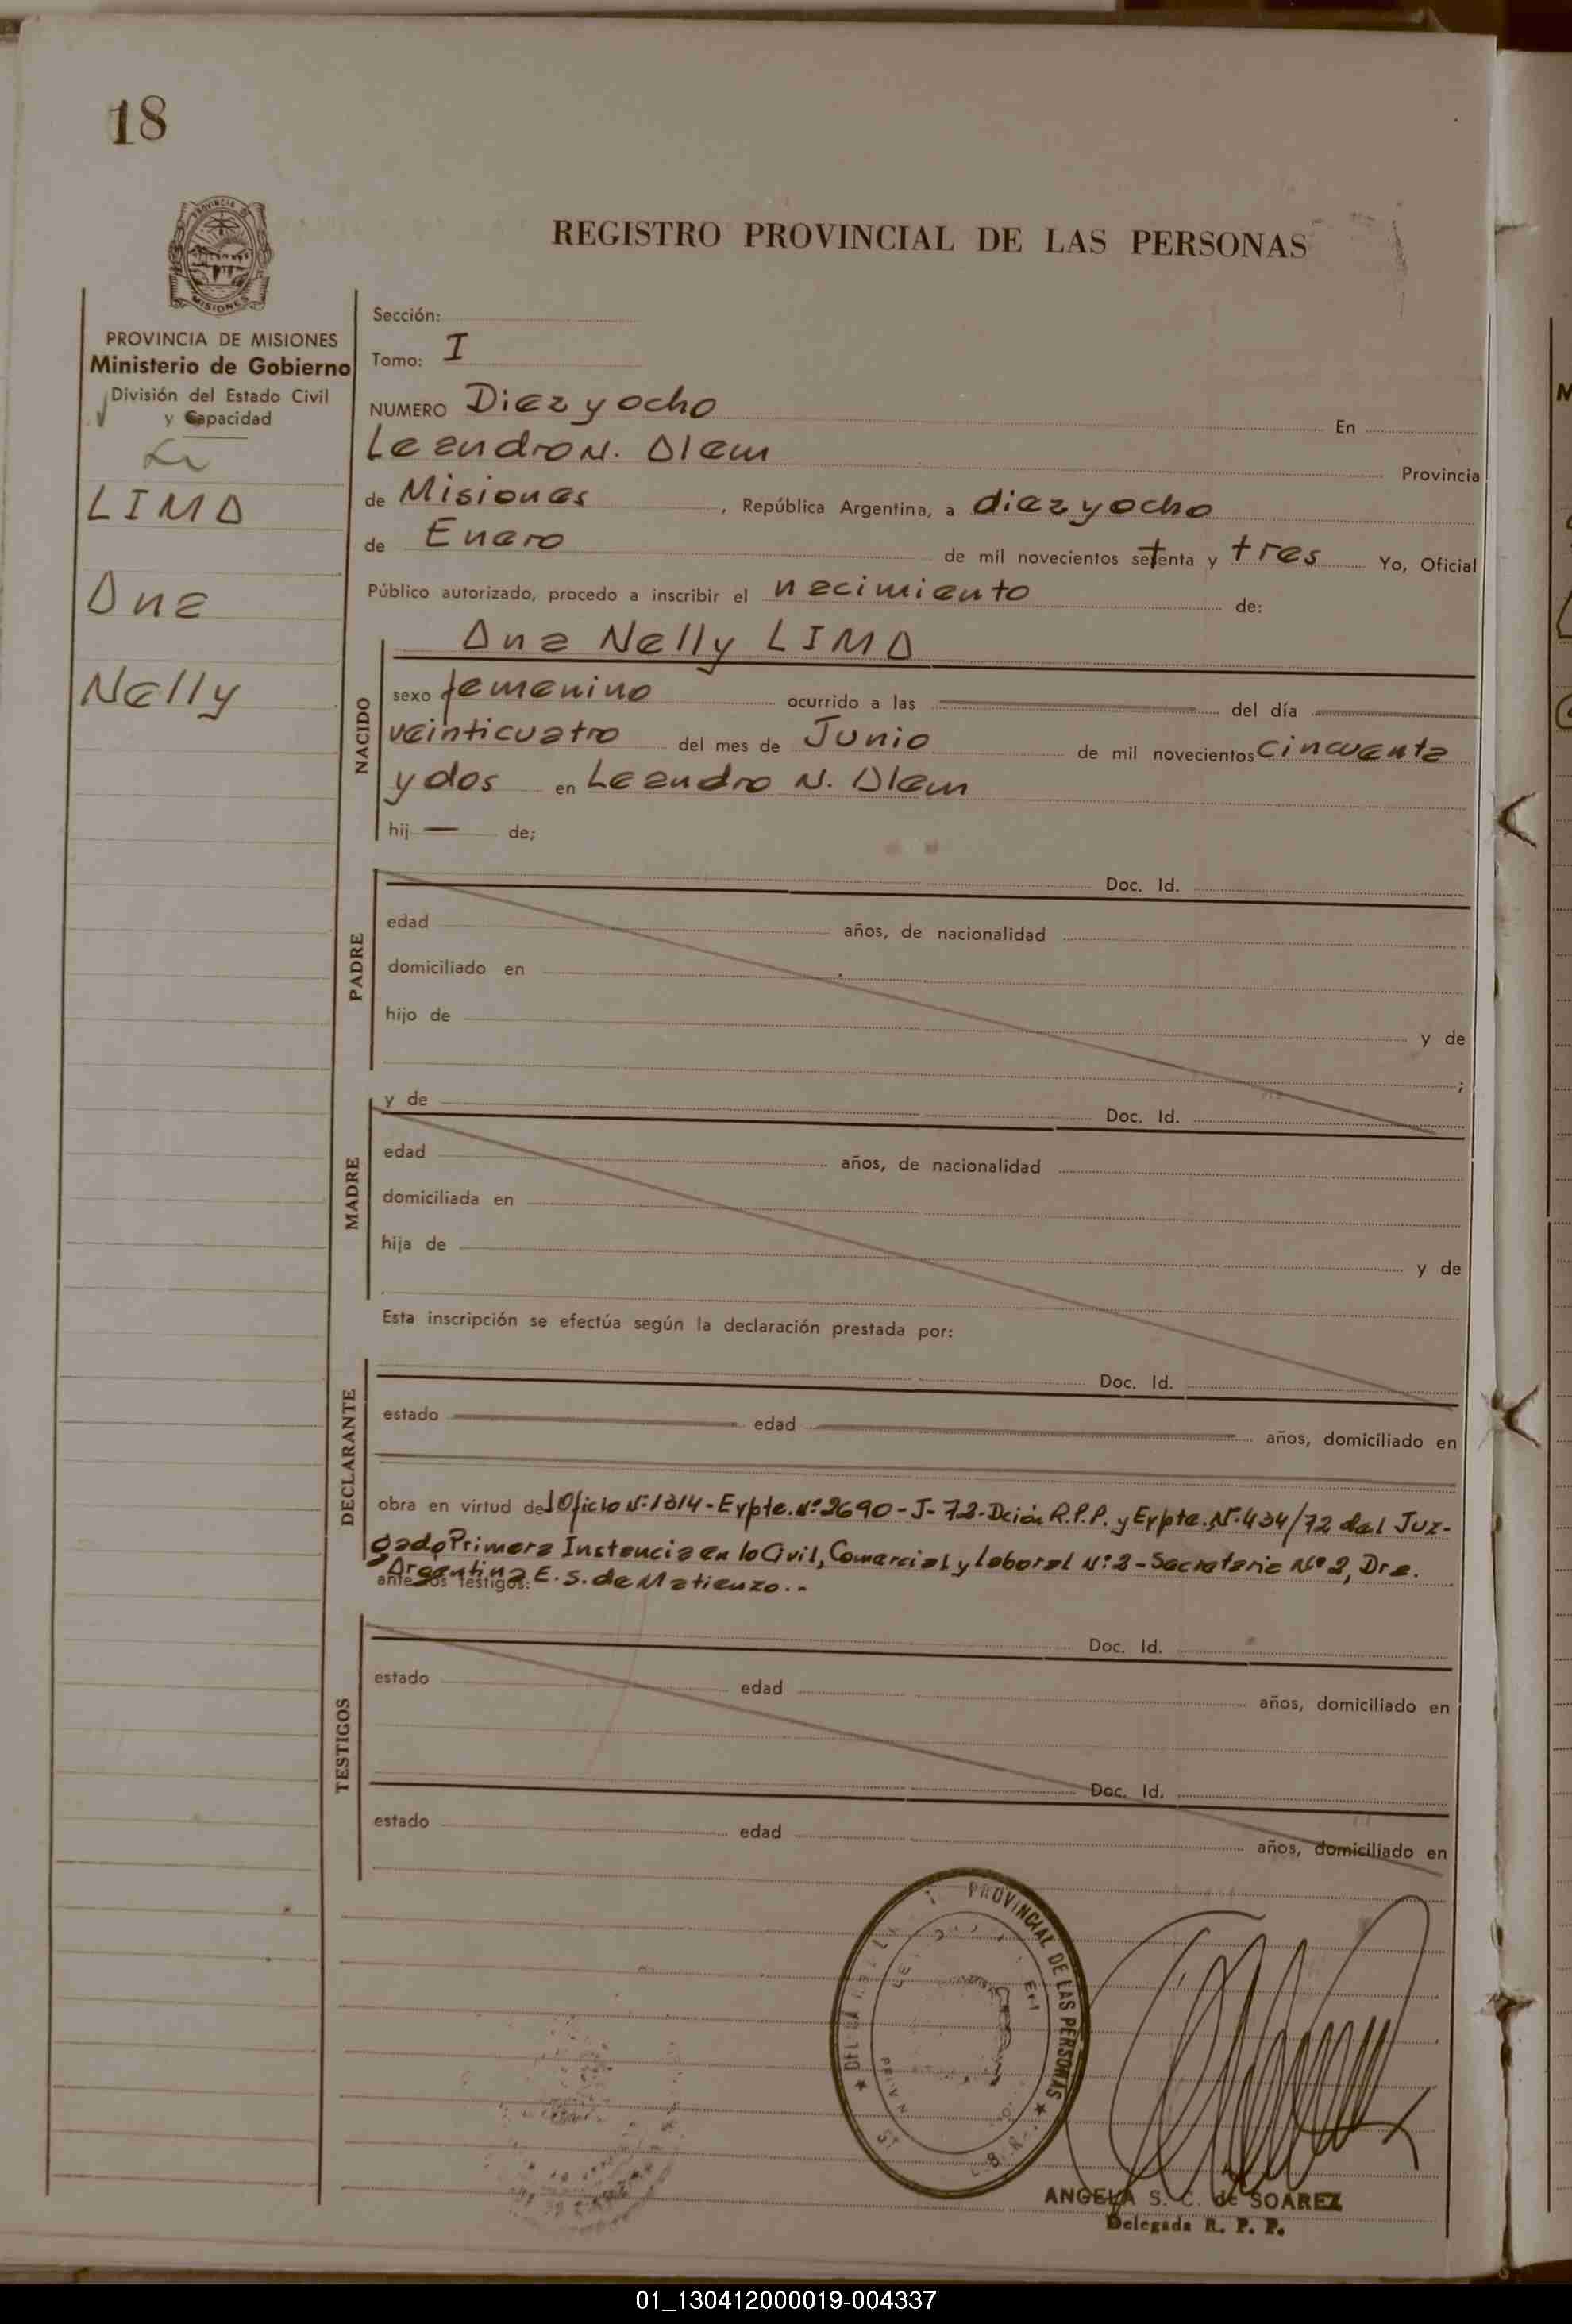 18
PROVINCIA DE
MISIONES
REGISTRO PROVINCIAL DE LAS PERSONAS
PROVINCIA DE MISIONES
Ministerio de Gobierno
División del Estado Civil
y Capacidad
LIMA
Ana
Nelly
Sección:
Tomo: I
NUMERO Diez y ocho En
Leandro N. Alem Provincia
de Misiones, República Argentina, a diez y ocho
de Enero de mil novecientos setenta y tres Yo, Oficial
Público autorizado, procedo a inscribir el nacimiento de:
NACIDO
Ana Nelly LIMA
sexo femenino ocurrido a las del día
veinticuatro del mes de Junio de mil novecientos cincuenta
y dos en Leandro N. Alem
hij — de;
PADRE
Doc. Id.
edad años, de nacionalidad
domiciliado en
hijo de y de
;
MADRE
y de Doc. Id.
edad años, de nacionalidad
domiciliada en
hija de y de
Esta inscripción se efectúa según la declaración prestada por:
DECLARANTE
Doc. Id.
estado edad años, domiciliado en
obra en virtud del Oficio Nº 1314 - Expte. Nº 2690 - J - 72 - Dción R.P.P. y Expte. Nº 434/72 del Juz-
gado Primera Instancia en lo Civil, Comercial y Laboral Nº 2 - Secretaria Nº 2, Dra.
Argentina E. S. de Matienzo.-
ante los testigos:
TESTIGOS
Doc. Id.
estado edad años, domiciliado en
Doc. Id.
estado edad años, domiciliado en
PROVINCIAL DE LAS PERSONAS
ANGELA S. C. de SOAREZ
Delegada R. P. P.
01_130412000019-004337